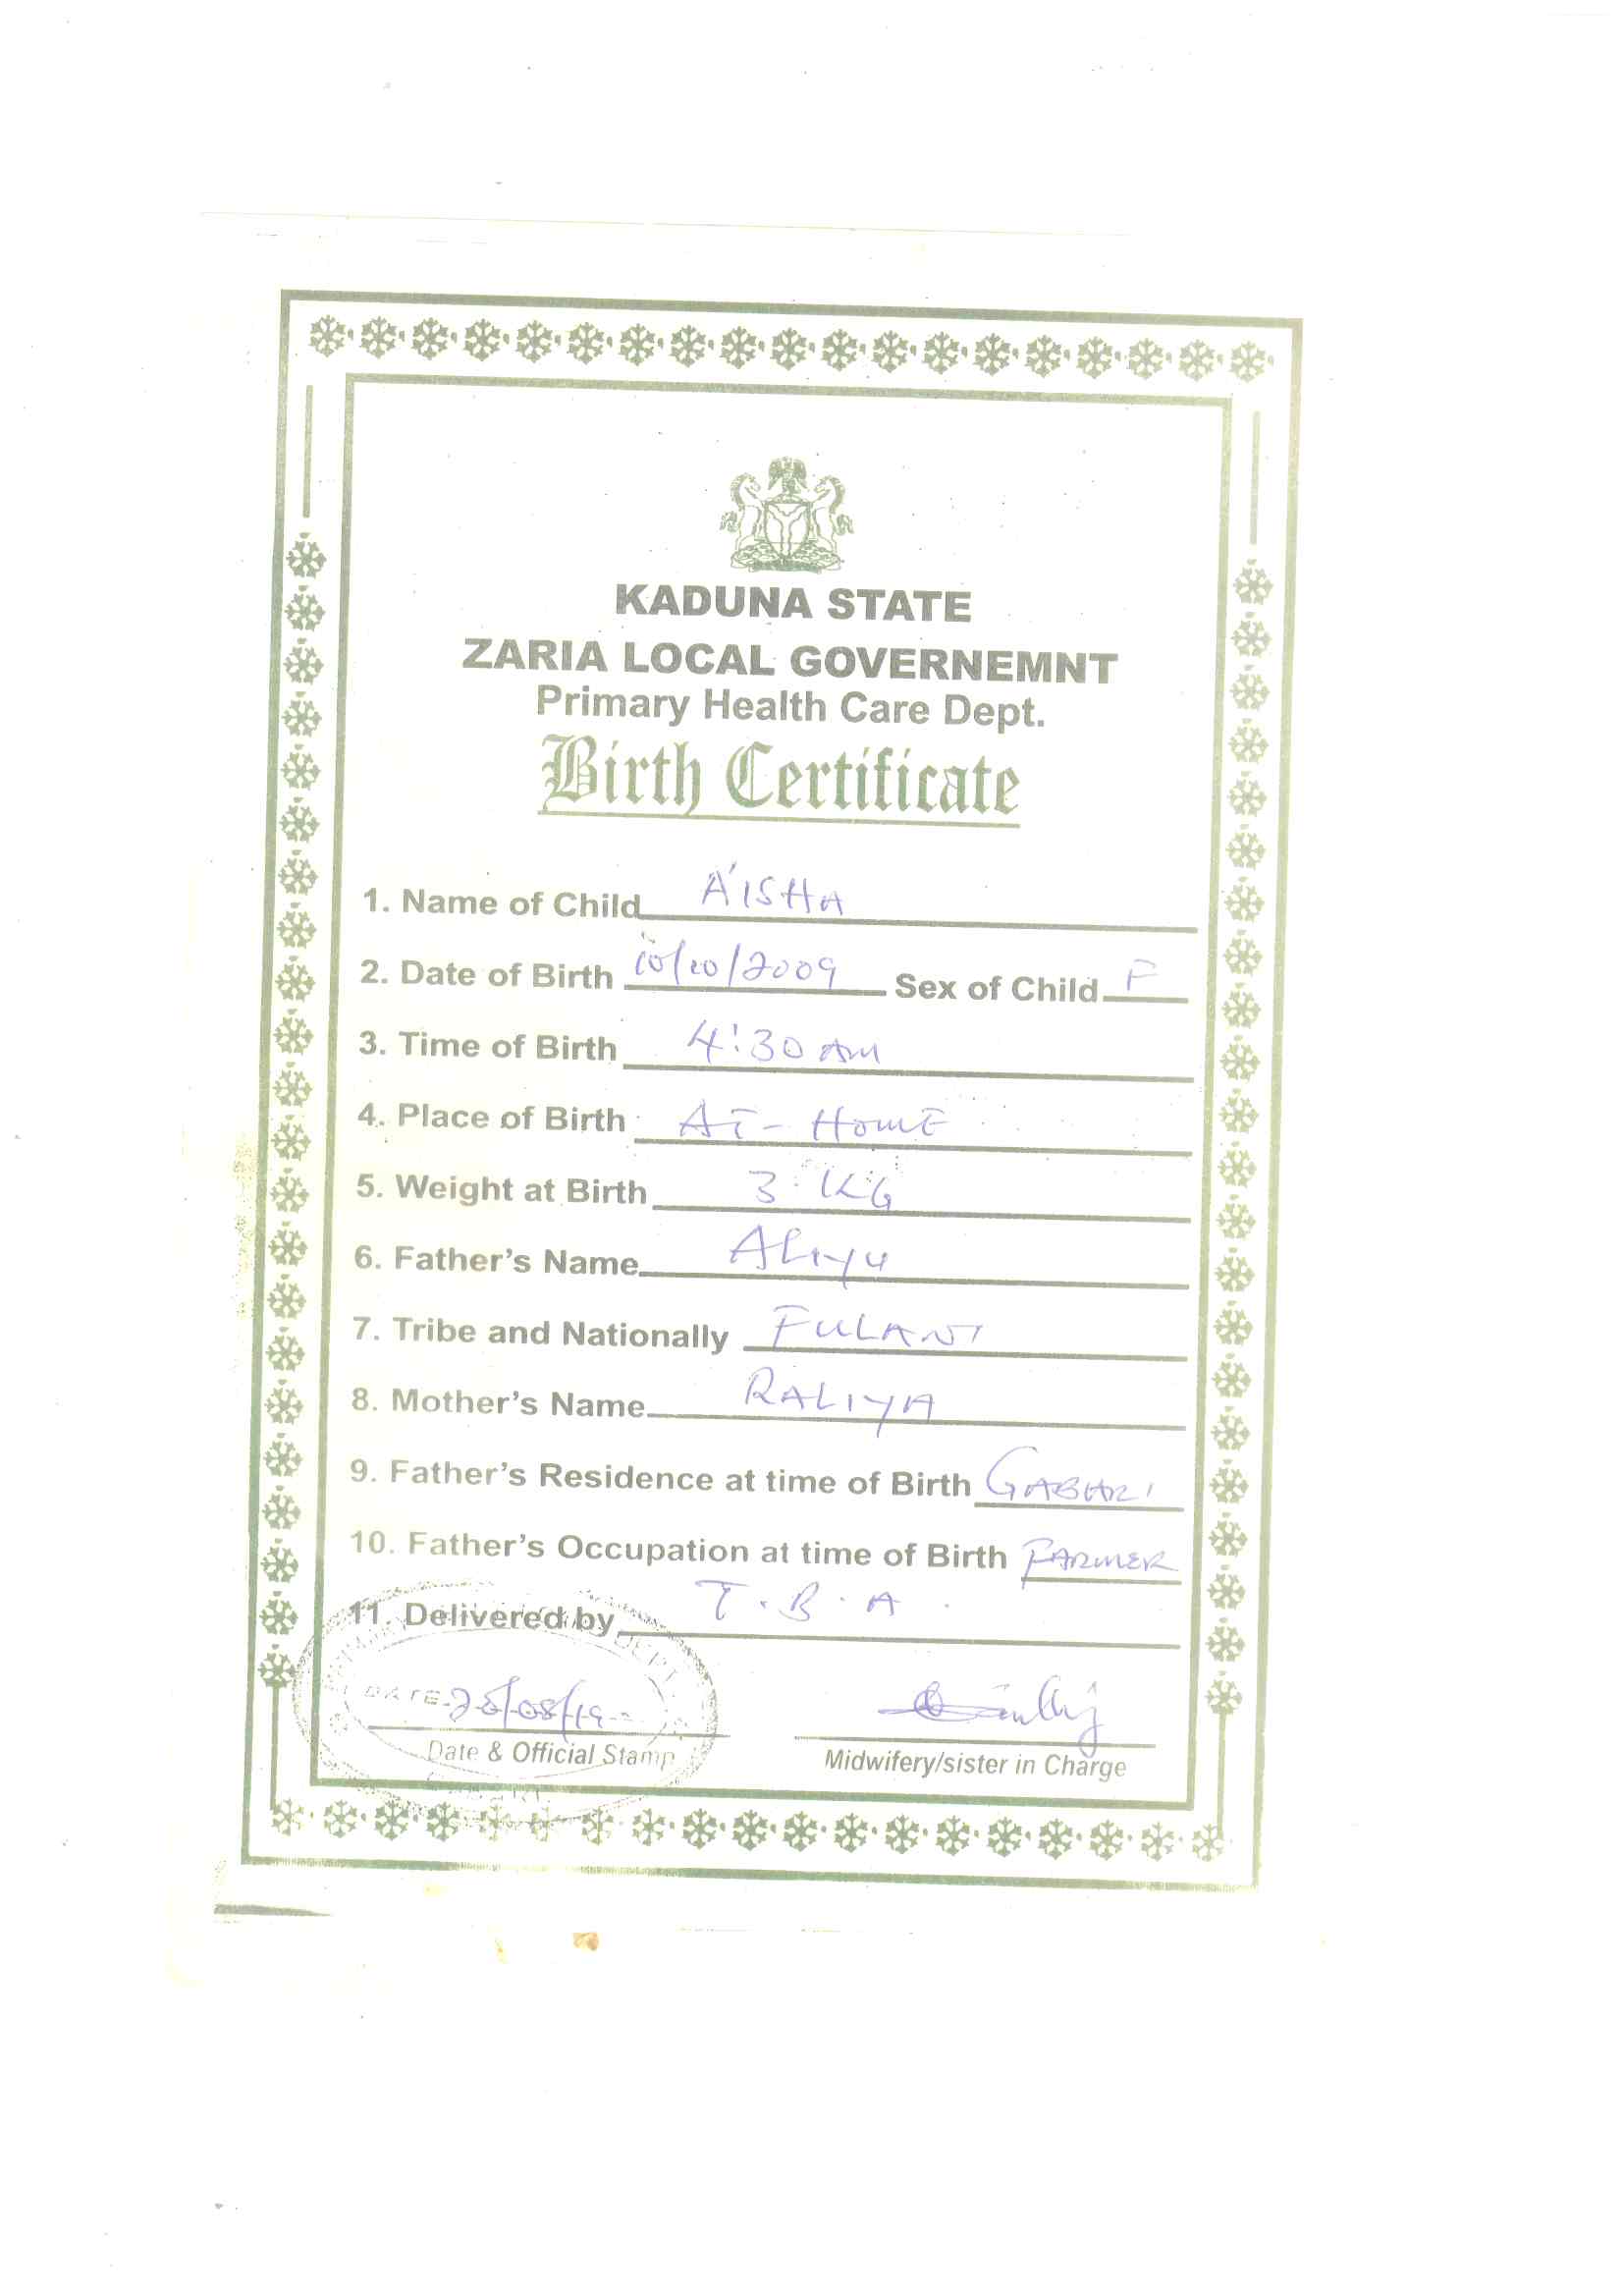 KADUNA STATE
ZARIA LOCAL GOVERNEMNT
Primary Health Care Dept.
Birth Certificate
1. Name of Child A'ISHA
2. Date of Birth 10/10/2009 Sex of Child F
3. Time of Birth 4:30 AM
4. Place of Birth AT-HOME
5. Weight at Birth 3 KG
6. Father's Name ALIYU
7. Tribe and Nationally FULANI
8. Mother's Name RALIYA
9. Father's Residence at time of Birth GABARI
10. Father's Occupation at time of Birth FARMER
11. Delivered by T.B.A.
DEPT.
DATE
Date & Official Stamp
Midwifery/sister in Charge